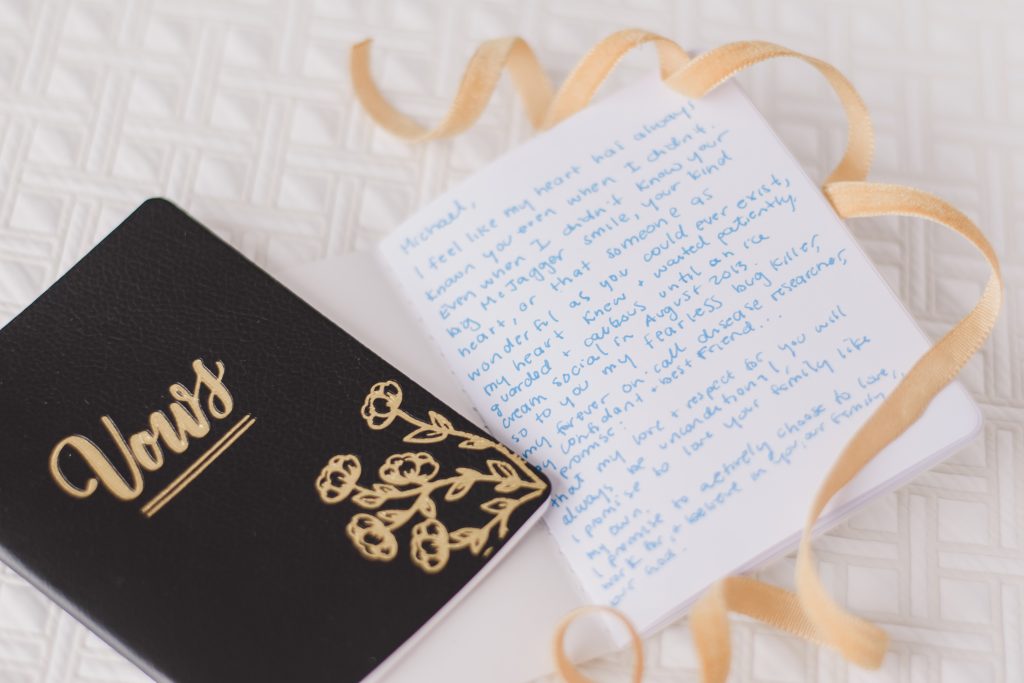 Vows
Michael,
I feel like my heart has always
known you even when I didn't.
Even when I didn't know your
big McJagger smile, your kind
heart, or that someone as
wonderful as you could ever exist,
my heart knew + waited patiently.
guarded + cautious until an ice
cream social in August 2015.
so to you my fearless bug killer,
my forever on-call disease researcher,
my confidant + best friend...
I promise:
that my love + respect for you will
always be unconditional,
I promise to love your family like
my own.
I promise to actively choose to
work for + believe in you, our family
our love,
our God.